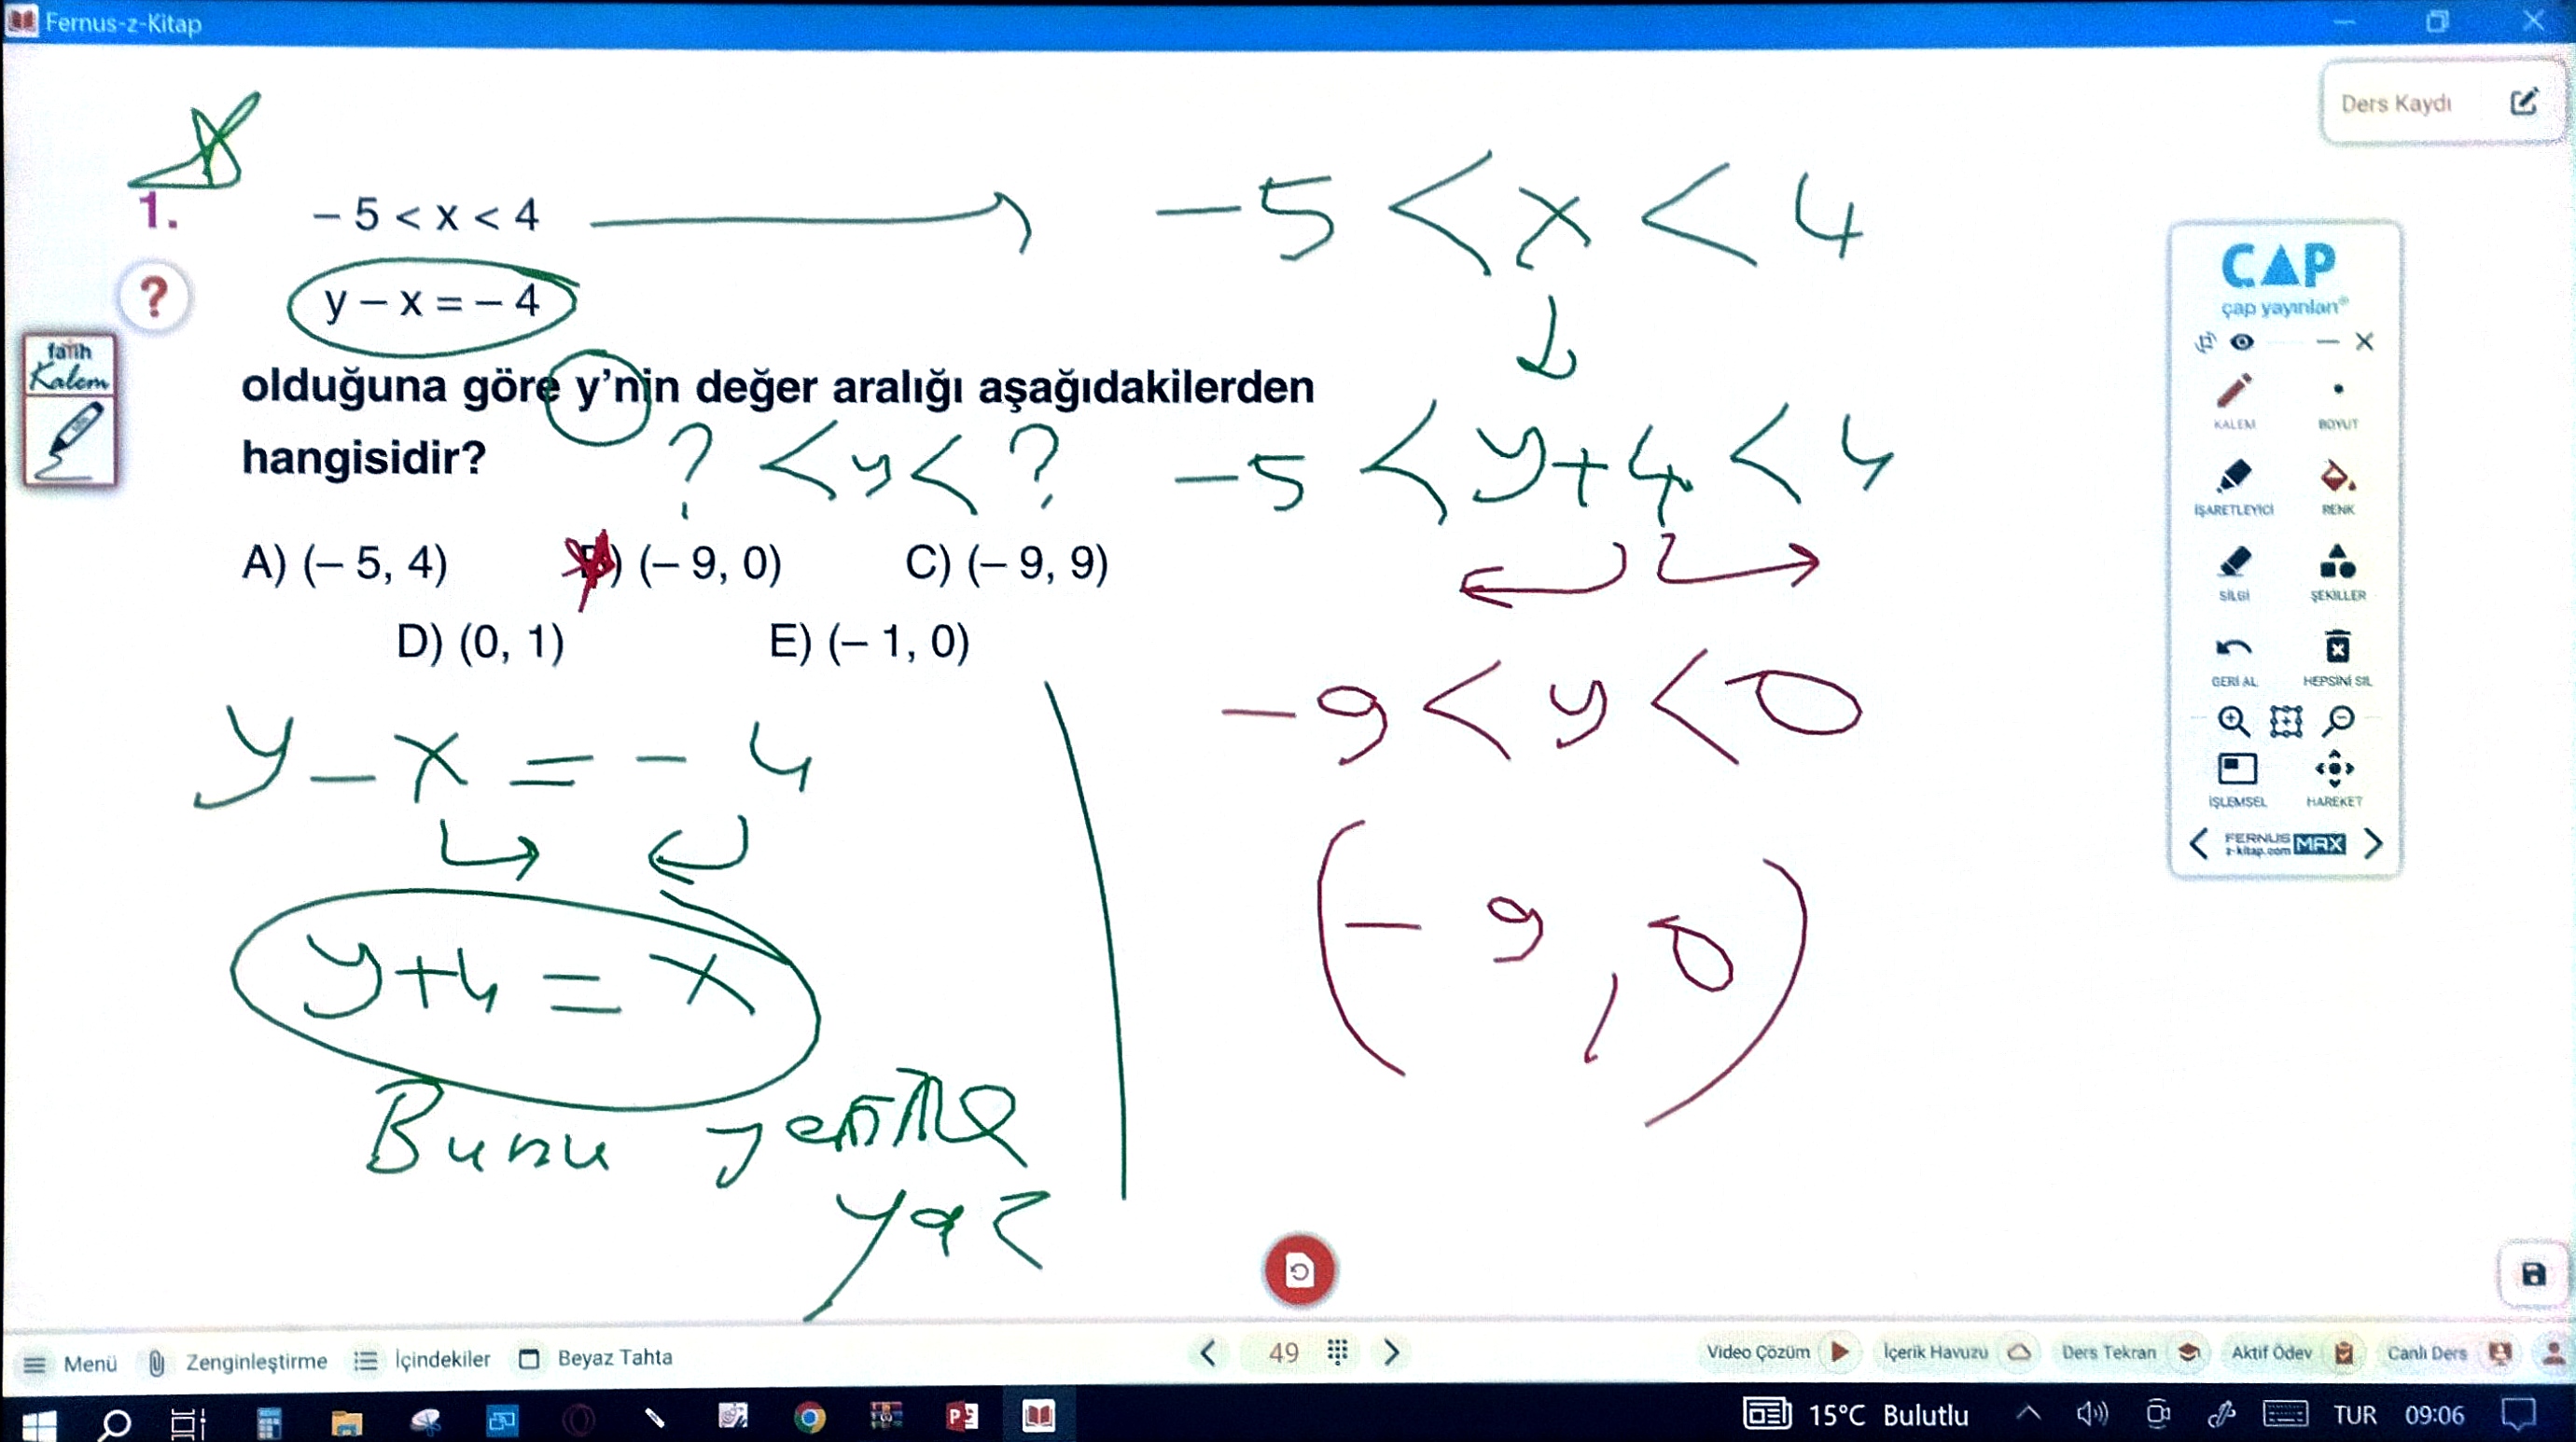 Fernus-z-Kitap
Ders Kaydı
1.
– 5 < x < 4
-5 < x < 4
?
y – x = – 4
fatih
Kalem
olduğuna göre y'nin değer aralığı aşağıdakilerden
hangisidir?
? < y < ?
-5 < y+4 < 4
A) (– 5, 4)
B) (– 9, 0)
C) (– 9, 9)
D) (0, 1)
E) (– 1, 0)
-9 < y < 0
y - x = - 4
(-9, 0)
y+4 = x
Bunu yerine
yaz
ÇAP
çap yayınları®
KALEM
BOYUT
İŞARETLEYİCİ
RENK
SİLGİ
ŞEKİLLER
GERİ AL
HEPSİNİ SİL
İŞLEMSEL
HAREKET
FERNUS
z-kitap.com
MAX
Menü
Zenginleştirme
İçindekiler
Beyaz Tahta
49
Video Çözüm
İçerik Havuzu
Ders Tekran
Aktif Ödev
Canlı Ders
15°C Bulutlu
TUR
09:06